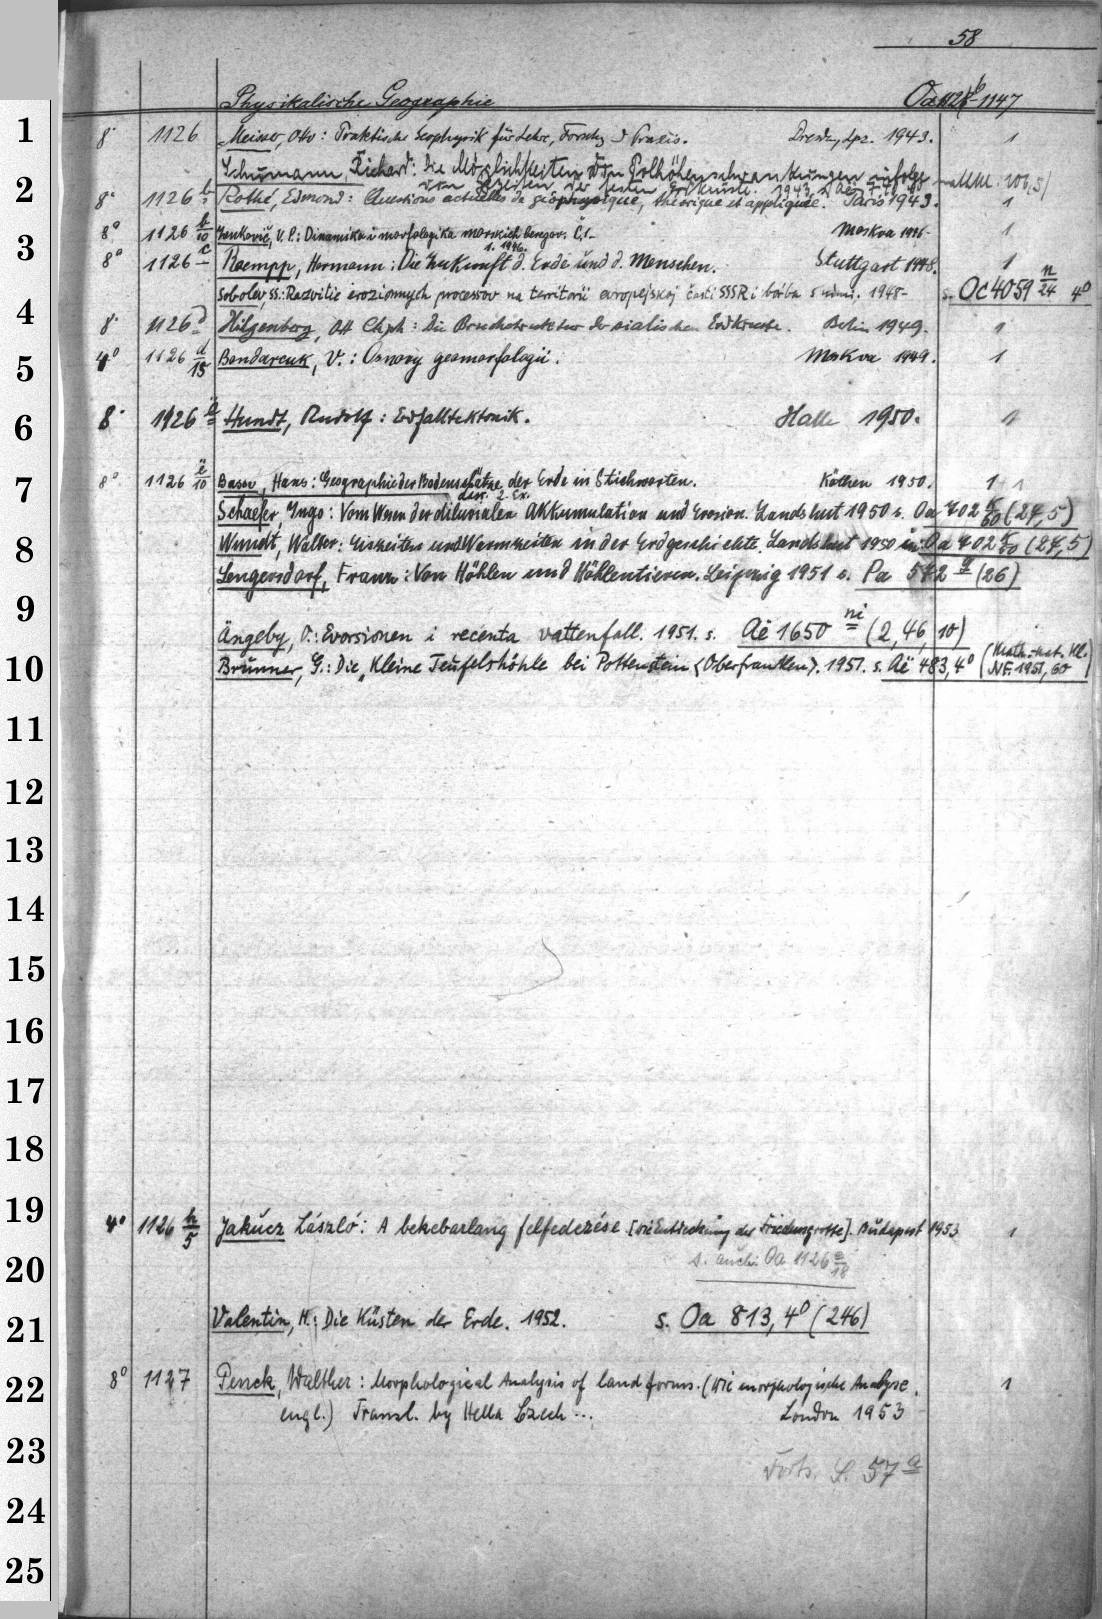 58
Physikalische Geographie Oa 1126 b-1147
1
8° 1126 Meisser, Otto: Praktische Geophysik für Lehre, Forschg u Praxis. Dresd., Lpz. 1943. 1
Schumann, Richard: Die Möglichkeiten von Polhöhenschwankungen infolge
2
von der festen Erdkruste. 1943.
8° 1126 b Rothé, Edmond: Questions actuelles de géophysique, théorique et appliquée. Paris 1943. 1
3
8° 1126 b/10 Zenkovič, V. P.: Dinamika i morfologija morskich beregov. Č. 1- Moskva 1946- 1
1. 1946.
8° 1126 c Roempp, Hermann: Die Zukunft d. Erde und d. Menschen. Stuttgart 1948. 1
Sobolev SS: Razvitie erozionnych processov na territorii evropejskoj časti SSSR i borba s nimi. 1948- s. Oc 4059 n/24 4°
4
8° 1126 d Hilgenberg, Ott Chph: Die Bruchstruktur der sialischen Erdkruste. Berlin 1949. 1
5
4° 1126 d/15 Bondarčuk, V.: Osnovy geomorfologii. Moskva 1949. 1
6
8° 1126 Hundt, Rudolf: Erdfalltektonik. Halle 1950. 1
7
8° 1126 e/10 Baser, Hans: Geographie der Bodenschätze der Erde in Stichworten. Köthen 1950. 1 + 1
dass. 2. Ex.
Schaefer, Ingo: Vom Wesen der diluvialen Akkumulation und Erosion. Landshut 1950 s. Oa 702 /60 (27,5)
8
Wundt, Walter: Eiszeiten und Warmzeiten in der Erdgeschichte. Landshut 1950 in: Oa 702 /60 (27,5)
Lengersdorf, Franz: Von Höhlen und Höhlentieren. Leipzig 1951 s. Pa 572 g (26)
9
Ängeby, O.: Evorsionen i recenta vattenfall. 1951. s. Aë 1650 ni (2,46,10)
10
Brunner, G.: Die „Kleine Teufelshöhle bei Pottenstein (Oberfranken). 1951. s. Aë 483, 4° (Math.-nat. Kl. NF. 1951, 60)
11
12
13
14
15
16
17
18
19
4° 1126 h/5 Jakucz László: A bekebarlang felfedezése [Die Entdeckung der Friedensgrotte]. Budapest 1953 1
20
s. auch: Oa 1126 e/18
21
Valentin, H.: Die Küsten der Erde. 1952. s. Oa 813, 4° (246)
22
8° 1127 Penck, Walther: Morphological Analysis of land forms. (Die morphologische Analyse. 1
engl.) Transl. by Hella Czech ... London 1953
23
Forts. S. 57 a
24
25